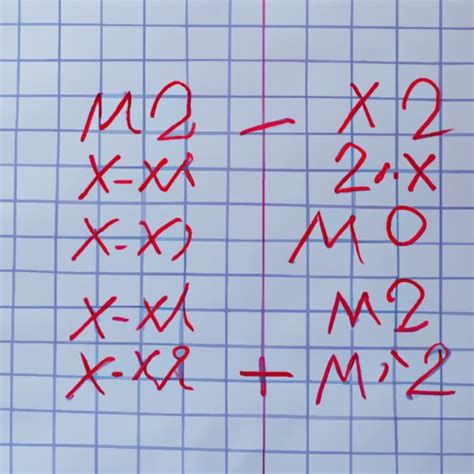 M2 - X2
X-X1 2..X
X-X) M0
X-X1 M2
X-X2 + M^2